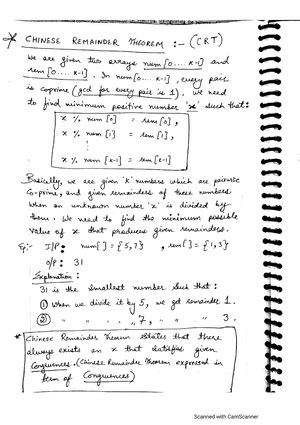 * CHINESE REMAINDER THEOREM :- (CRT)
We are given two arrays num[0....k-1] and
rem[0....k-1]. In num[0...k-1], every pair
is coprime (gcd for every pair is 1). We need
to find minimum positive number 'x' such that:
x % num[0] = rem[0],
x % num[1] = rem[1],
⋮
x % num[k-1] = rem[k-1]
Basically, we are given 'k' numbers which are pairwise
co-prime, and given remainders of these numbers
when an unknown number 'x' is divided by
them. We need to find the minimum possible
value of x that produces given remainders.
Eg:- I/P: num[] = {5,7}, rem[] = {1,3}
O/P: 31
Explanation:
31 is the smallest number such that:
① When we divide it by 5, we get remainder 1.
② " " " " 7, " " " 3.
* Chinese Remainder Theorem states that there
always exists an x that satisfies given
congruences. (Chinese Remainder Theorem expressed in
term of congruences)
Scanned with CamScanner